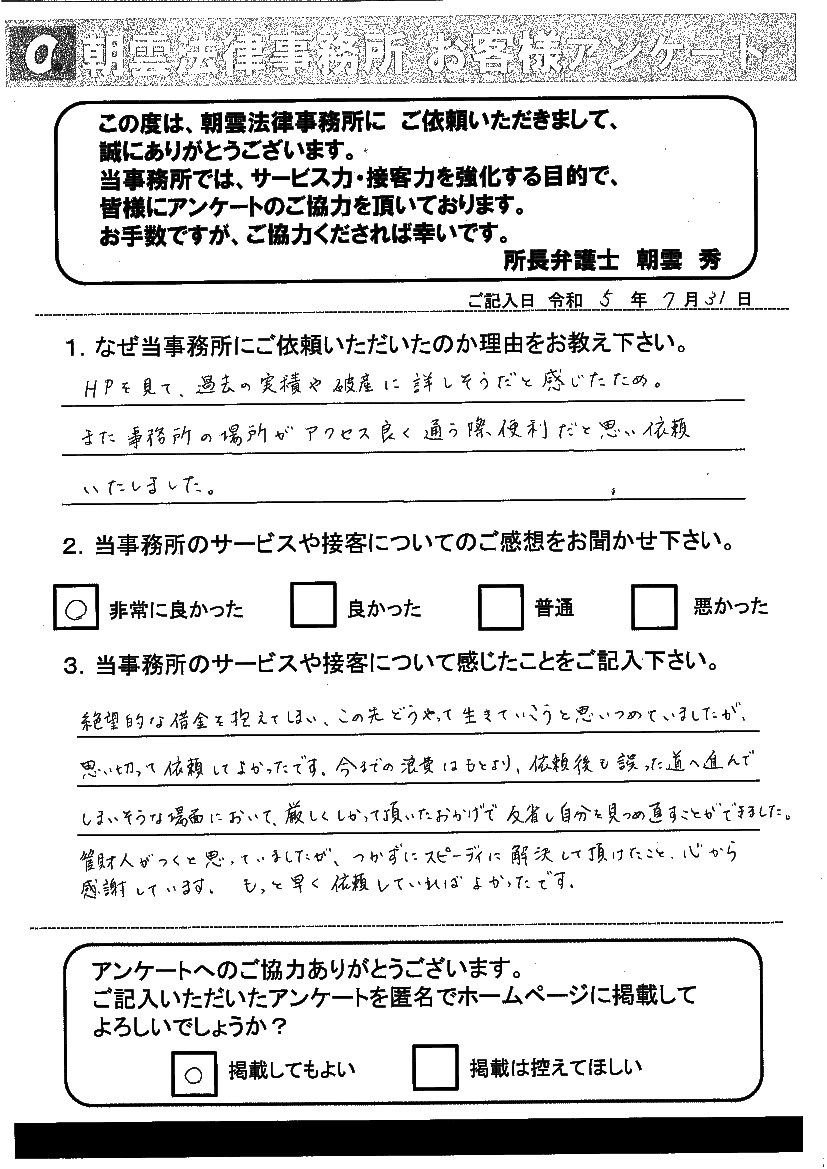 朝雲法律事務所 お客様アンケート
この度は、朝雲法律事務所に ご依頼いただきまして、
誠にありがとうございます。
当事務所では、サービス力・接客力を強化する目的で、
皆様にアンケートのご協力を頂いております。
お手数ですが、ご協力くだされば幸いです。
所長弁護士 朝雲 秀
ご記入日 令和 5 年 7 月 31 日
1. なぜ当事務所にご依頼いただいたのか理由をお教え下さい。
HPを見て、過去の実績や破産に詳しそうだと感じたため。
また事務所の場所がアクセス良く通う際、便利だと思い依頼
いたしました。
2. 当事務所のサービスや接客についてのご感想をお聞かせ下さい。
○ 非常に良かった 良かった 普通 悪かった
3. 当事務所のサービスや接客について感じたことをご記入下さい。
絶望的な借金を抱えてしまい、この先どうやって生きていこうと思いつめていましたが、
思い切って依頼してよかったです。今までの浪費はもとより、依頼後も誤った道へ進んで
しまいそうな場面において、厳しくしかって頂いたおかげで反省し自分を見つめ直すことができました。
管財人がつくと思っていましたが、つかずにスピーディに解決して頂けたこと、心から
感謝しています。もっと早く依頼していればよかったです。
アンケートへのご協力ありがとうございます。
ご記入いただいたアンケートを匿名でホームページに掲載して
よろしいでしょうか？
○ 掲載してもよい 掲載は控えてほしい